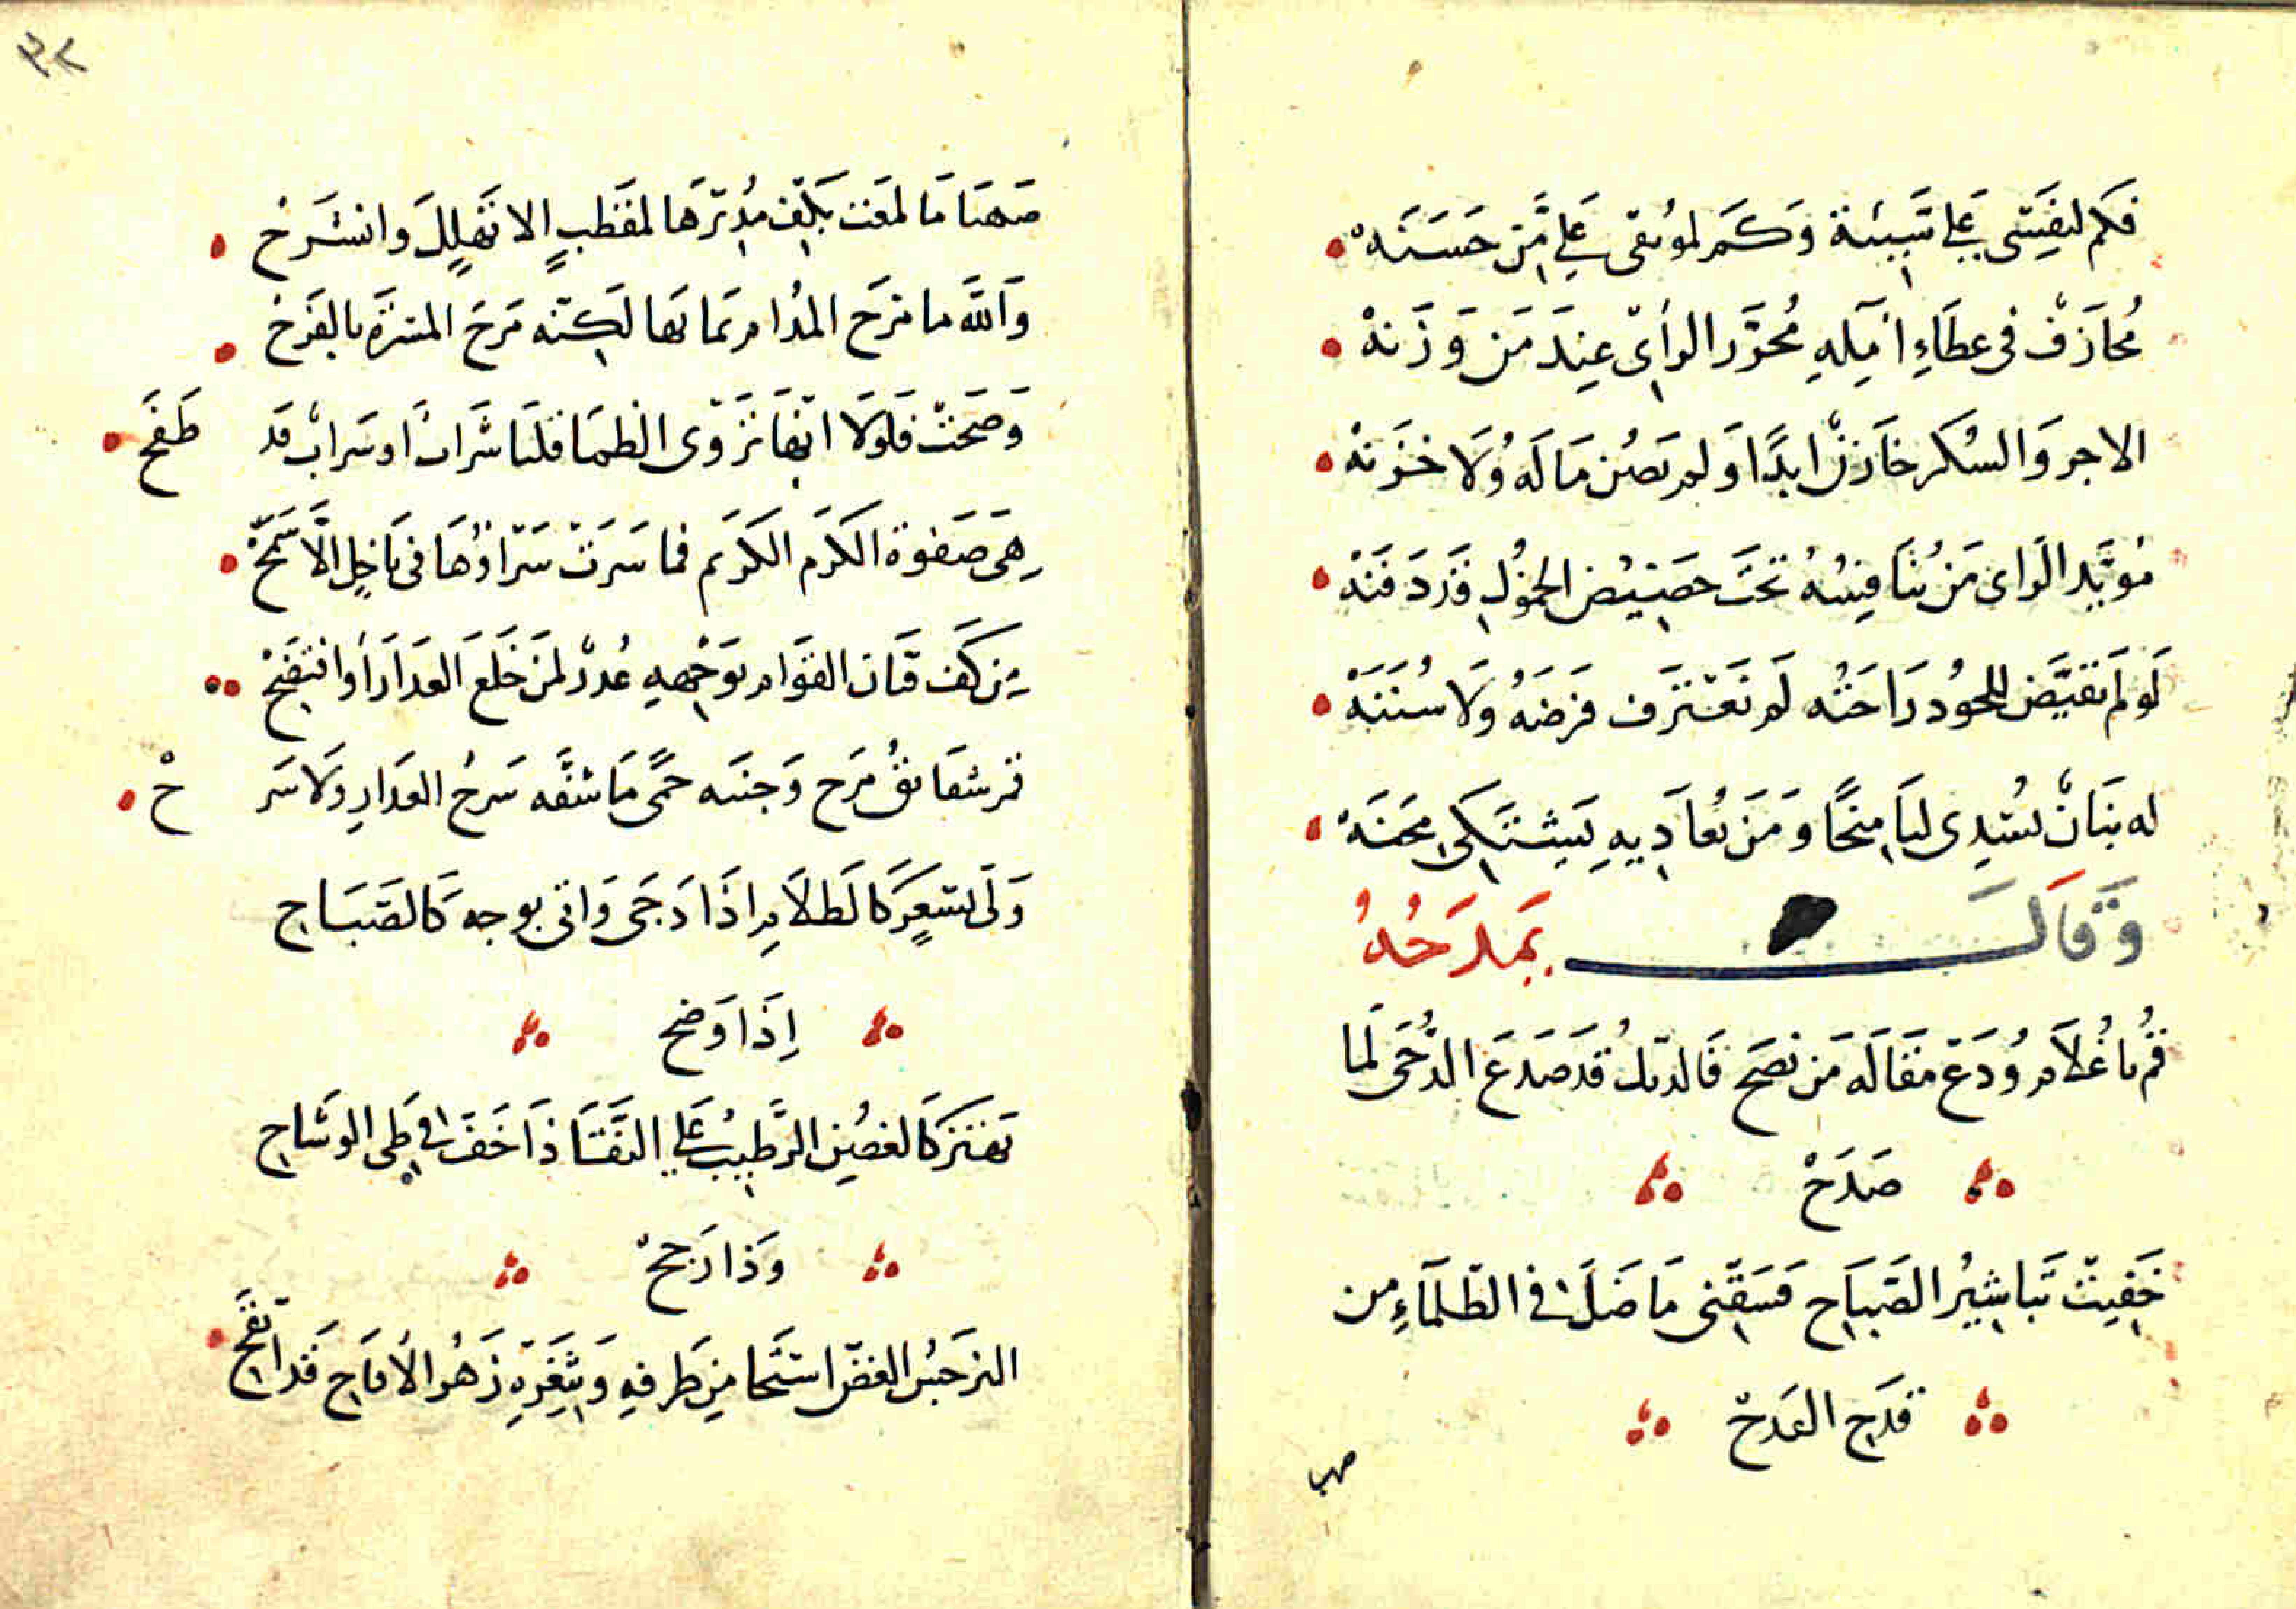 فكم لفيتى على سيئة وكم لموتقى على من حسنه
مُحَارَف فى عطاءِ آمِلِهِ مُحرَّر الرأى عندَ مَن وَزَنهْ
الاجر وَالشكر خازنٌ ابدًا وَلم تصُن مَالَهُ وُلَا خزنهْ
مُؤيَّد الراى مَن يُنَافِسُهُ تحتَ حضيض الخمولِ قَد دَفَنَهْ
لَو لَم تفيَّض للجُود رَاحَتُه لَم نَعْترَف فَرضَهُ وَلَا سُنَنَهْ
له بنَانٌ تُسْدِى لنَا مِنحًا وَمَن يُعَادِيهِ يَشتَكى مِحَنَهْ
وَقَالَ يَمدَحُهُ
قُم يا غُلَام وُدَع مَقَالَه مَن نصَح فَالديكُ قَد صَدَعَ الدُّجَى لَمَا
صَدَحْ
خَفِيَتْ تَبَاشِيرُ الصَّبَاح فَسَقّنى مَا ضَلَّ فى الظلمَآءِ من
قَدَح القدحْ
صهب
صَهبَا مَا لمعَت بكَف مُدِيرهَا لمقَطبٍ الا تهَللَ وَانشرَحْ
وَاللَّه مَا مزَح المُدَام بمَا بهَا لَكِنّه مَزجَ المسَرّة بالفَرَحْ
وَضَحَتْ فَلَولَا انّهَا تَروى الظمَا قلنَا شَرَابٌ او سَرَابٌ قَد طَفَحْ
هِىَ صَفوة الكرَم الكَريم فما سَرَتْ سَرّاؤُهَا فى بَاخِلٍ الَّا سَمَحْ
مِن كَف فتان القوَام بوَجْههِ عُذرٌ لمَن خَلَعَ العَذَارَ او افتَضَحْ
قمر شقَائقُ مَرج وَجنَته حمًى مَا شَقَّه سَرحُ العَذَارِ وَلَا سَرَحْ
وَلَّى بشَعرٍ كَالظَلَامِ اذَا دَجَى وَاتى بوَجه كَالصَّبَاح
اِذَا وَضح
يَهتز كَالغصُنِ الرَّطِيبُ علَى النَّقَا ذَا خَفَّ فى طَى الوشَاح
وَذَا رَجحْ
النرجسُ الغضّ استَحَا من طَرفِهِ وَبِثَغرِهِ زَهرُ الأقَاح قَد اتقَح